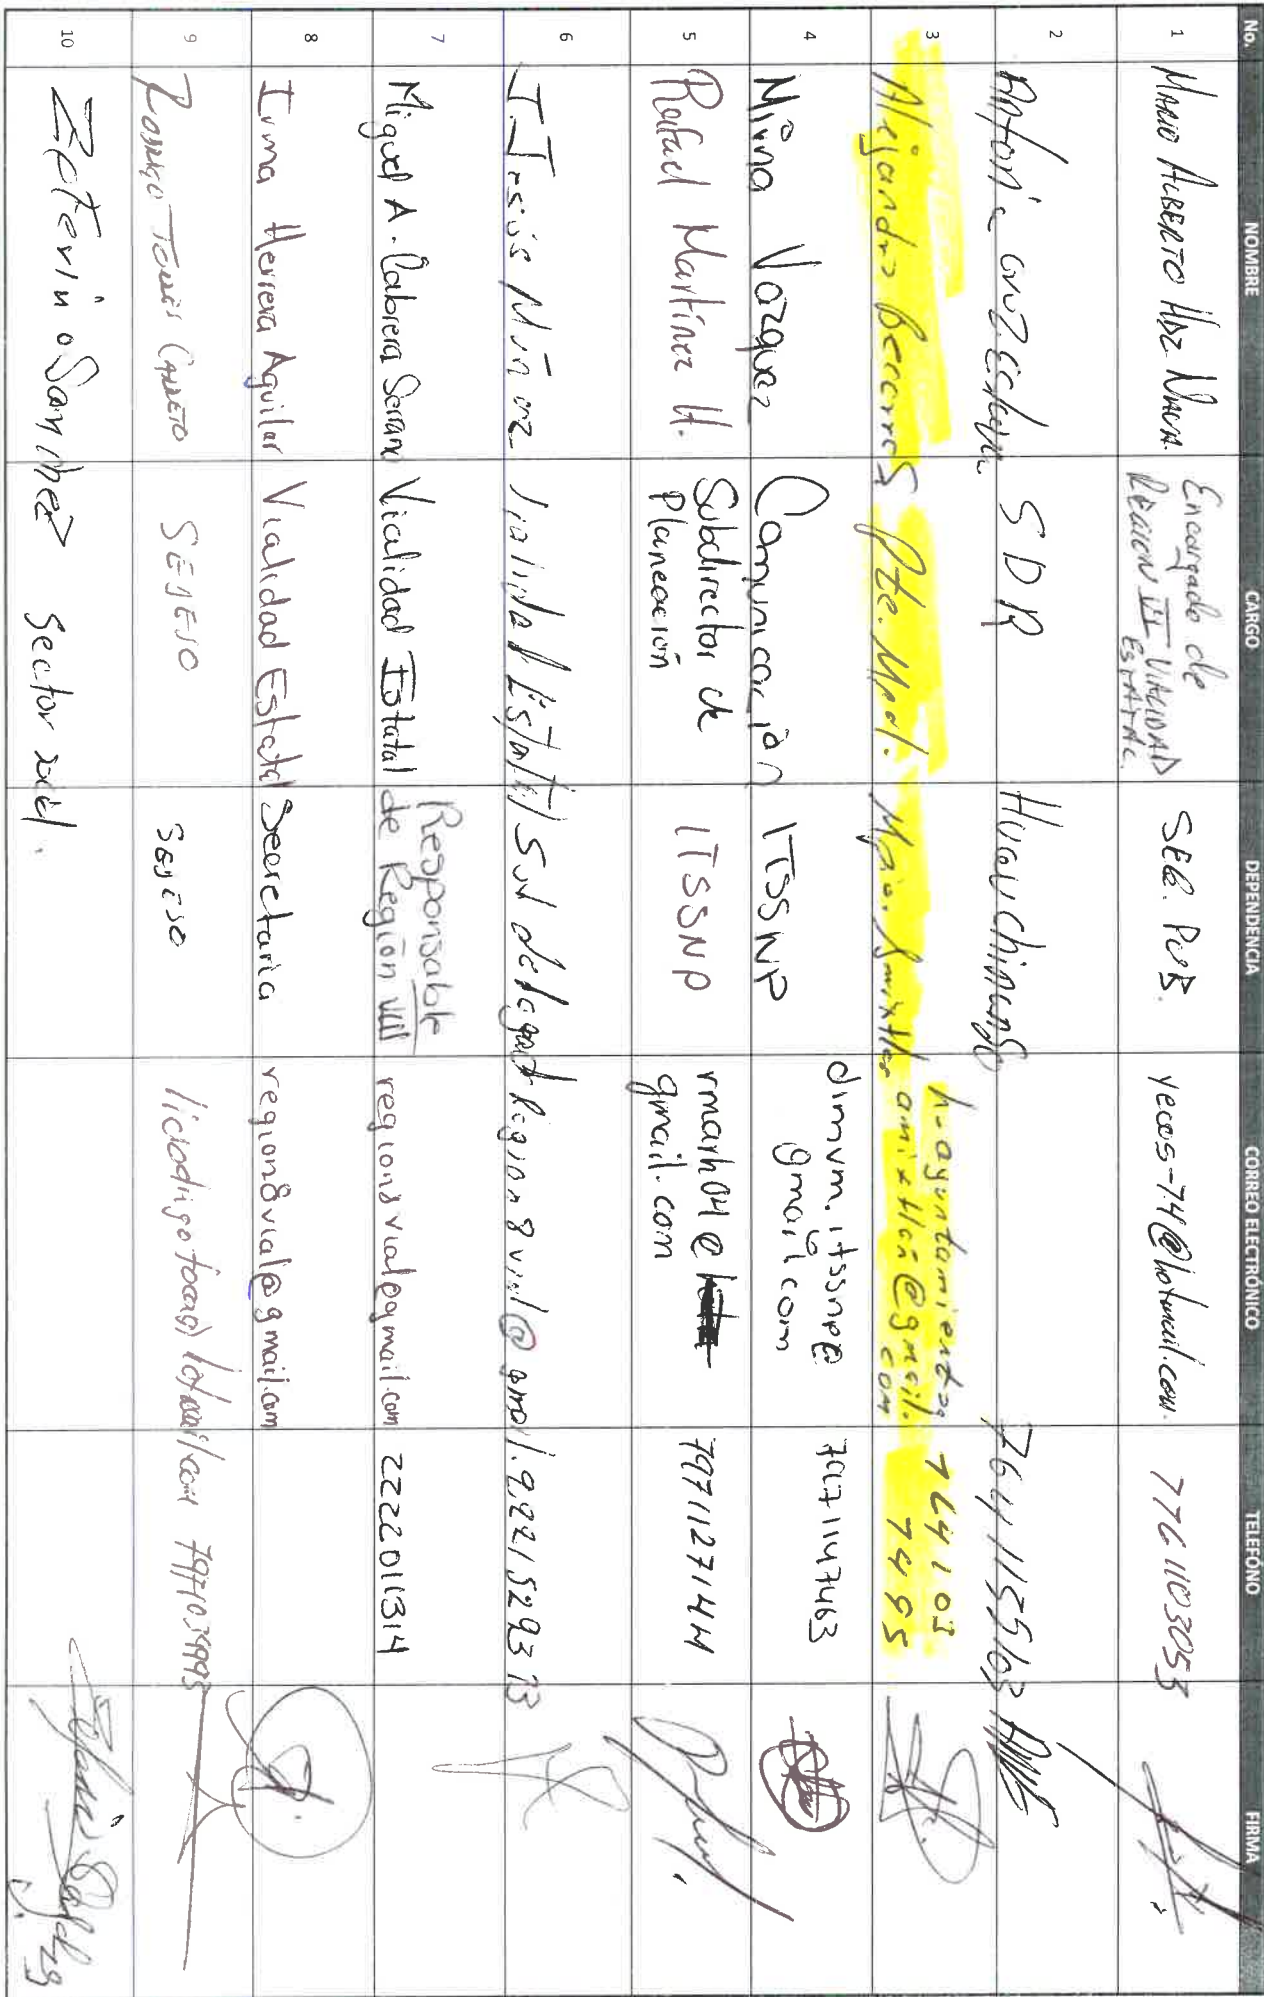 No. NOMBRE CARGO DEPENDENCIA CORREO ELECTRÓNICO TELEFÓNO FIRMA
1 MARIO ALBERTO HDZ NAVA. Encargado de REGION VII VIALIDAD ESTATAL SEG. PUB. yecos-74@hotmail.com. 776 1103053
2 Antonia cruz SDR Huauchinango 764 1155103
3 Alejandro Becerra S Pte. Mpal. Mpio. Amixtlan h-ayuntamiento amixtlan@gmail.com 764103 7495
4 Mirna Vazquez Comunicación ITSSNP dimvm.itssnp@gmail.com 7971147463
5 Rafael Martínez H. Subdirector de Planeación ITSSNP rmarh04@gmail.com 7971127144
6 J. Jesús Muñoz Vialidad Estatal Sub delegado Region 8 vial@gmail. 2221529373
7 Miguel A. Cabrera Serrano Vialidad Estatal Responsable de Región VIII region8vial@gmail.com 2222011314
8 Irma Herrera Aguilar Vialidad Estatal Secretaria region8vial@gmail.com
9 RODRIGO CARRETO SEDESO SEDESO
10 Zeferino Sanchez Sector